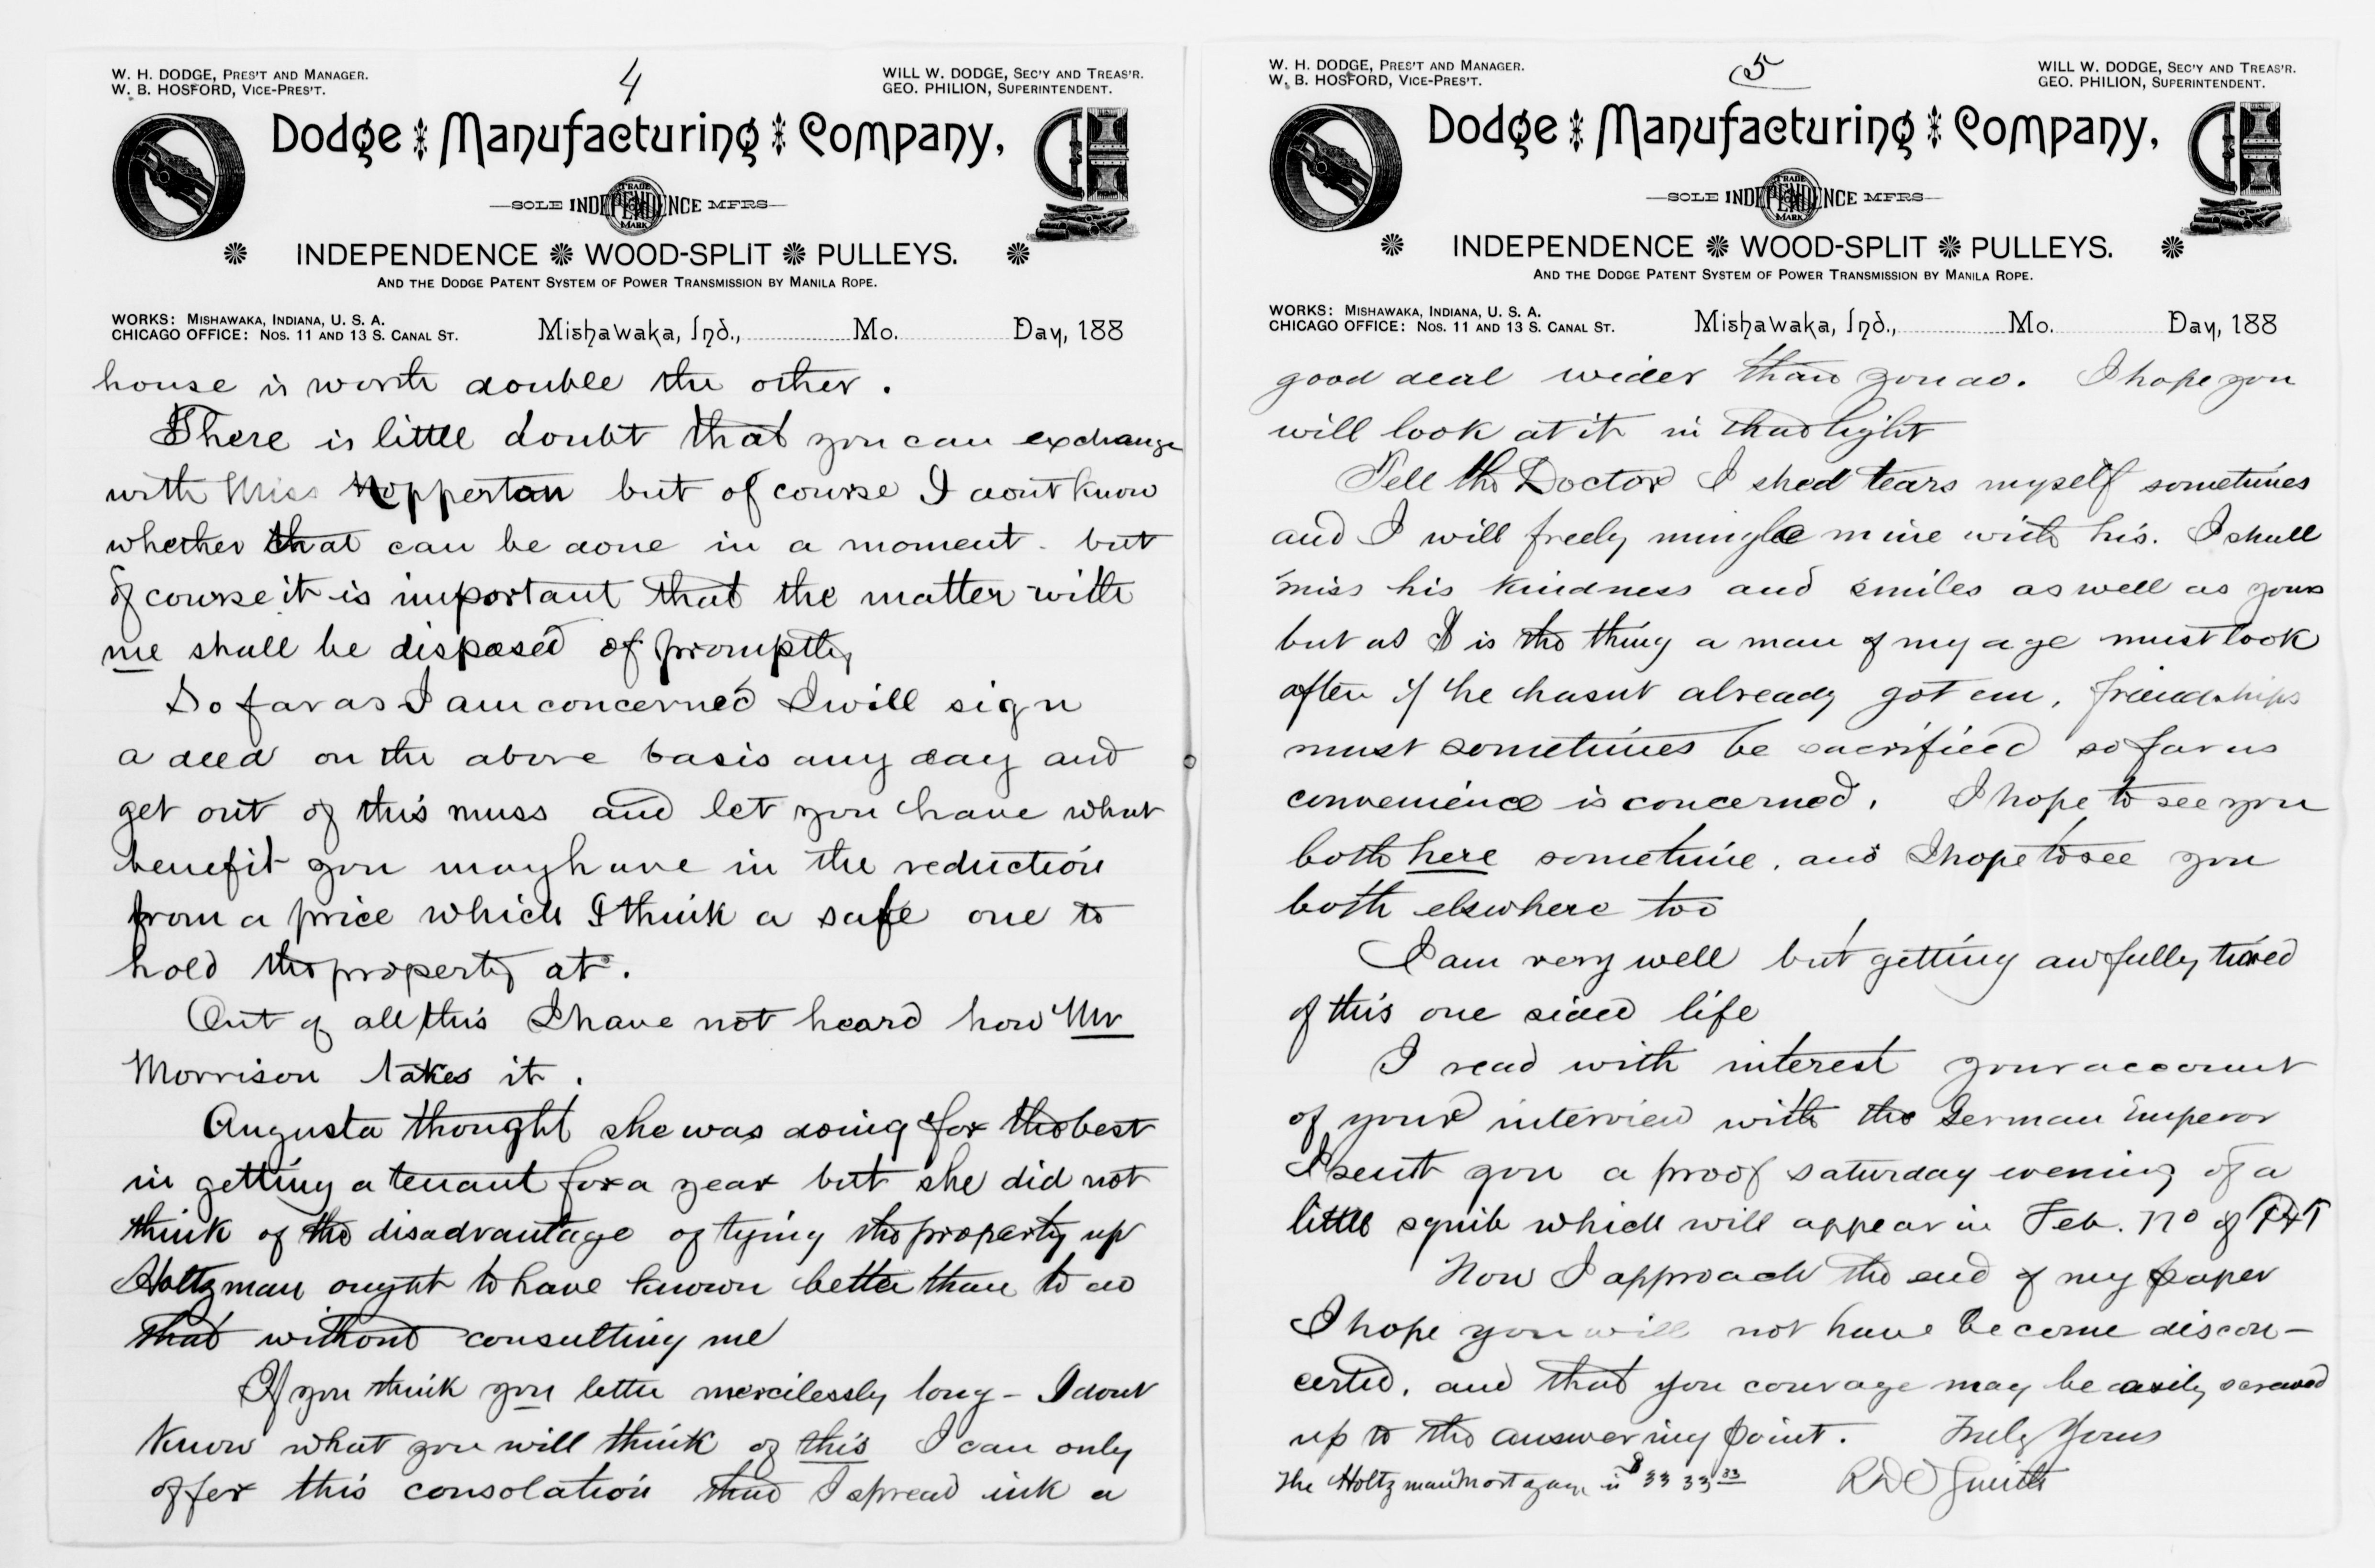 W. H. DODGE, PRES'T AND MANAGER.
W. B. HOSFORD, VICE-PRES'T.
4
WILL W. DODGE, SEC'Y AND TREAS'R.
GEO. PHILION, SUPERINTENDENT.
Dodge Manufacturing Company,
SOLE INDEPENDENCE MFRS
TRADE MARK
INDEPENDENCE WOOD-SPLIT PULLEYS.
AND THE DODGE PATENT SYSTEM OF POWER TRANSMISSION BY MANILA ROPE.
WORKS: MISHAWAKA, INDIANA, U. S. A.
CHICAGO OFFICE: NOS. 11 AND 13 S. CANAL ST.
Mishawaka, Ind., Mo. Day, 188
house is worth double the other.
There is little doubt that you can exchange
with Miss but of course I dont know
whether that can be done in a moment. but
of course it is important that the matter with
me shall be disposed of promptly
So far as I am concerned I will sign
a deed on the above basis any day and
get out of this muss and let you have what
benefit you may have in the reduction
from a price which I think a safe one to
hold the property at.
Out of all this I have not heard how Mr
Morrison takes it.
Augusta thought she was doing for the best
in getting a tenant for a year but she did not
think of the disadvantage of tying the property up
Holtzman ought to have known better than to do
that without consulting me
If you think you letter mercilessly long - I dont
know what you will think of this I can only
offer this consolation that I spread ink a
W. H. DODGE, PRES'T AND MANAGER.
W. B. HOSFORD, VICE-PRES'T.
5
WILL W. DODGE, SEC'Y AND TREAS'R.
GEO. PHILION, SUPERINTENDENT.
Dodge Manufacturing Company,
SOLE INDEPENDENCE MFRS
TRADE MARK
INDEPENDENCE WOOD-SPLIT PULLEYS.
AND THE DODGE PATENT SYSTEM OF POWER TRANSMISSION BY MANILA ROPE.
WORKS: MISHAWAKA, INDIANA, U. S. A.
CHICAGO OFFICE: NOS. 11 AND 13 S. CANAL ST.
Mishawaka, Ind., Mo. Day, 188
good deal wider than you do. I hope you
will look at it in that light
Tell the Doctor I shed tears myself sometimes
and I will freely mingle mine with his. I shall
miss his kindness and smiles as well as yours
but as $ is the thing a man of my age must look
after if he hasnt already got em, friendships
must sometimes be sacrificed so far as
convenience is concerned. I hope to see you
both here sometime, and I hope to see you
both elsewhere too
I am very well but getting awfully tired
of this one sided life
I read with interest your account
of your interview with the German Emperor
I sent you a proof saturday evening of a
little squib which will appear in Feb. No of P&T
Now I approach the end of my paper
I hope you will not have become discon-
certed, and that you courage may be easily screwed
up to the answering point. Truly Yours
The Holtzman Mortgage is $3333 33 RDO Smith